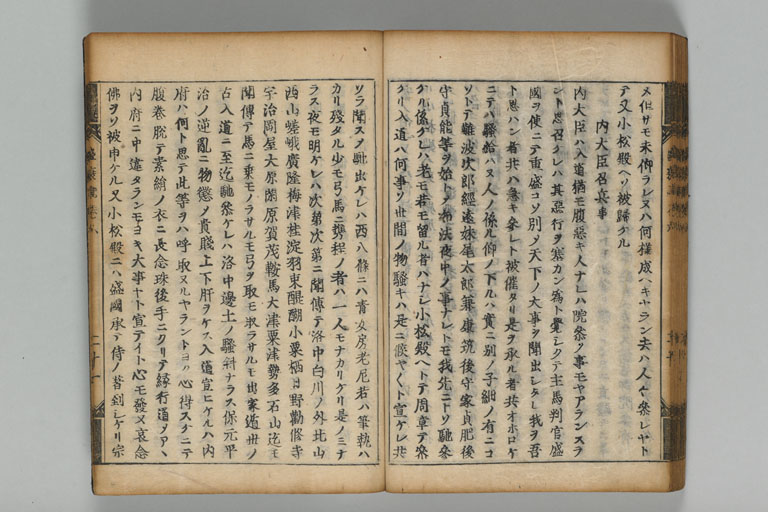 メ但サモ未仰ラレヌハ何様成ハキヤラン夫ハ人々参レヤト
テ又小松殿ヘソ被帰ケル
内大臣召兵事
内大臣ハ入道猶モ腹惡キ人ナレハ院参ノ事モヤアランスラ
ント思召ケレハ其惡行ヲ塞カン為ト覺シクテ主馬判官盛
國ヲ使ニテ重盛コソ別ノ天下ノ大事ヲ聞出シタレ我ヲ吾
ト思ハン者共ハ急キ参レト被催タリ是ヲ承ル者共オホロケ
ニテハ騒給ハヌ人ノ係ル仰ノ下ルハ實ニ別ノ子細ノ有ニコ
ソトテ難波次郎經遠妹尾太郎兼康筑後守家貞肥後
守貞能等ヲ始トノ折法夜中ノ事ナレトモ我先ニトソ馳参
ケル係ケレハ老モ若モ留ル者ハナシ小松殿ヘトテ周章テ参
ケリ入道ハ何事ソ世間ノ物騒キハ是ニ候ヤト宣ケレ共
ソラ聞スノ馳出ケレハ西八條ニハ青女房老尼若ハ筆執ハ
カリ殘タル少モ弓馬ニ携程ノ者ハ一人モナカリケリ是ノミナ
ラス夜モ明ケレハ次第次第ニ聞傳テ洛中白川ノ外北山
西山嵯峨廣隆梅津桂淀羽束醍醐小粟栖日野勸修寺
宇治岡屋大原閑原賀茂鞍馬大津粟津勢多石山迄モ
聞傳テ馬ニ乗モノラサルモ弓ヲ取モ取ラサルモ出家遁世ノ
古入道ニ至迄馳参ケレハ洛中邊土ノ騒斜ナラス保元平
治ノ逆亂ニ物懲ノ貴賤上下肝ヲケス入道宣ヒケルハ内
府ハ何ト思テ此等ヲハ呼取ヌルヤラントヨハ心得スケニテ
腹巻脱テ素絹ノ衣ニ長念珠後手ニクリテ縁行道ノアハ
内府ニ中違タランモヨキ大事ヤト宣テイト心モ發ヌ哀念
佛ヲソ被申ケル又小松殿ニハ盛國承テ侍ノ著到シケリ宗